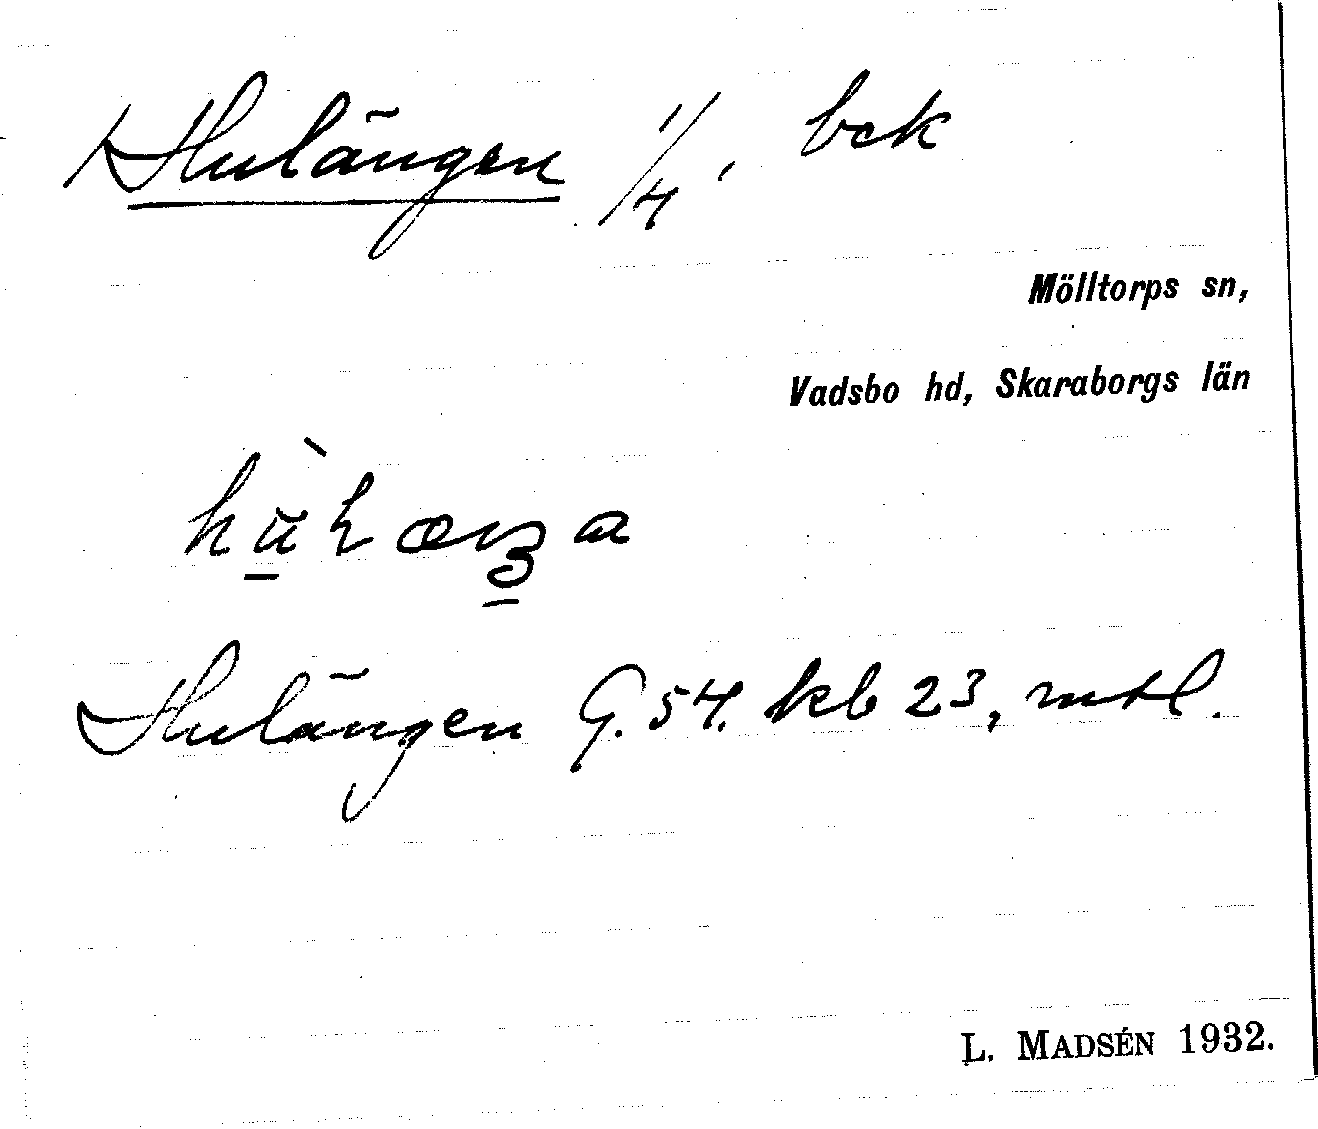 Hulängen 1/4, bck
Mölltorps sn,
Vadsbo hd, Skaraborgs län
Hulängen G. 54. kb 23, mtl.
L. MADSÉN 1932.